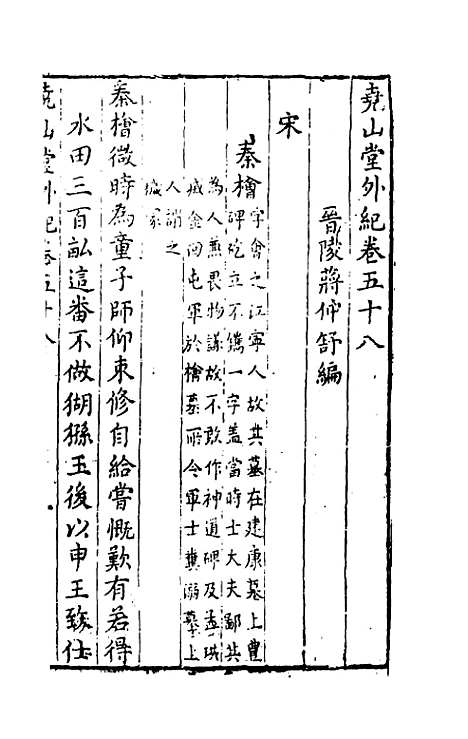 堯山堂外紀卷五十八
晉陵蔣仲舒編
宋
秦檜
字會之江寜人故其墓在建康墓上豊
碑屹立不鐫一字盖當時士大夫鄙其
為人兼畏物議故不敢作神道碑及孟珙
滅金囘屯軍於檜墓所令軍士糞溺墓上
人謂之
穢冢
秦檜微時為童子師仰束修自給嘗慨歎有若得
水田三百畆這番不做猢猻王後以申王致仕
堯山堂外紀卷五十八